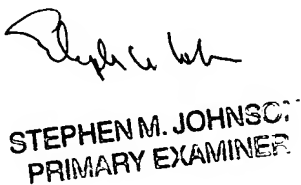 STEPHEN M. JOHNSON
PRIMARY EXAMINER